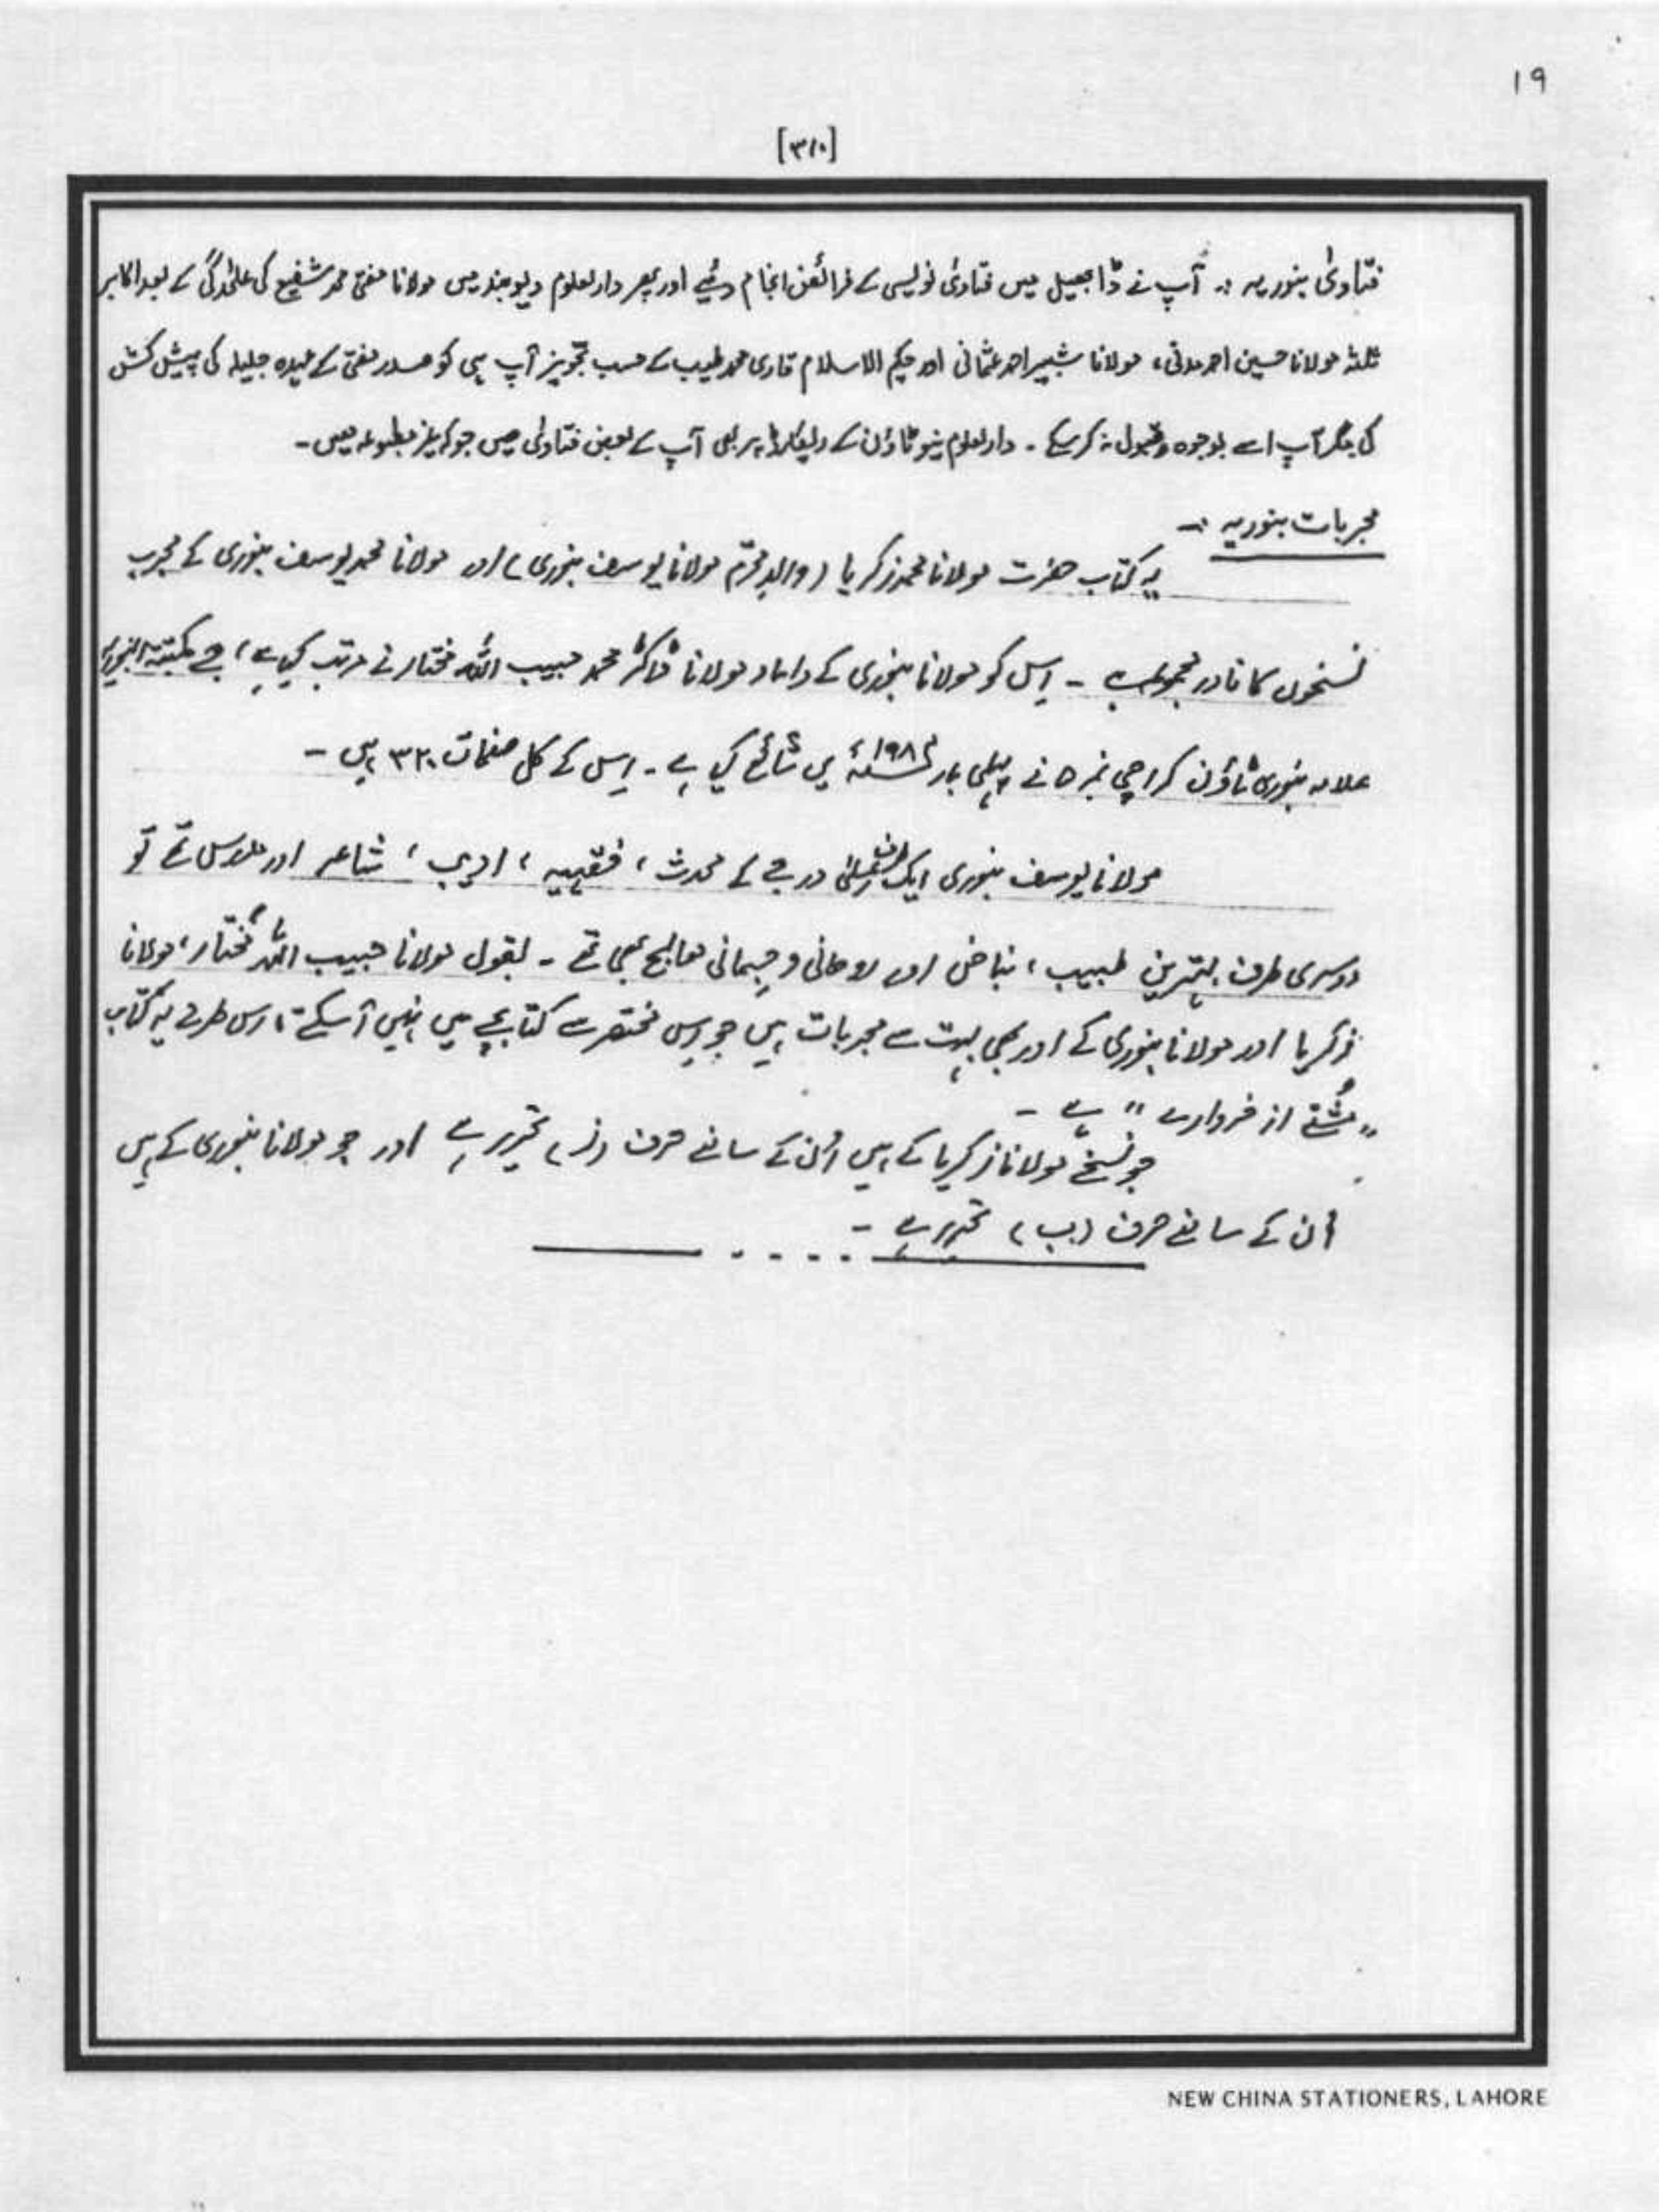 ۱۹
[۳۱۰]
فتاویٰ بنوریہ :۔ آپ نے ڈابھیل میں فتاویٰ نویسی کے فرائض انجام دئیے اور پھر دارلعلوم دیوبند میں مولانا مفتی محمد شفیع کی علحٰدگی کے بعد اکابر
ثلٰثہ مولانا حسین احمد مدنی، مولانا شبیر احمد عثمانی اور حکیم الاسلام قاری محمد طیب کے حسب تجویز آپ ہی کو صدر مفتی کے عہدہ جلیلہ کی پیش کش
کی مگر آپ اسے بوجوہ قبول نہ کر سکے ۔ دارلعلوم نیو ٹاؤن کے ریکارڈ پر بھی آپ کے بعض فتاویٰ ہیں جو کہ غیر مطبوعہ ہیں۔
مجربات بنوریہ :۔
یہ کتاب حضرت مولانا محمد زکریا (والدِ محترم مولانا یوسف بنوری) اور مولانا محمد یوسف بنوری کے مجرب
نسخوں کا نادر مجموعہ ہے ۔ اِس کو مولانا بنوری کے داماد مولانا ڈاکٹر محمد حبیب اللہ مختار نے مرتب کیا ہے، جسے مکتبۃ البنوریہ
علامہ بنوری ٹاؤن کراچی نمبر ۵ نے پہلی بار ۱۹۸۴ء میں شائع کیا ہے ۔ اِس کے کل صفحات ۳۲۰ ہیں ۔
مولانا یوسف بنوری ایک طرف اعلیٰ درجے کے محدث ، فقیہہ ، ادیب ، شاعر اور مدرس تھے تو
دوسری طرف بہترین طبیب ، نباض اور روحانی و جسمانی معالج بھی تھے ۔ بقول مولانا حبیب اللہ مختار، مولانا
زکریا اور مولانا بنوری کے اور بھی بہت سے مجربات ہیں جو اِس مختصر سے کتابچے میں نہیں آ سکتے، اِس طرح یہ کتاب
"مُشتے از خروارے" ہے ۔
جو نسخے مولانا زکریا کے ہیں اُن کے سامنے حرف (ز) تحریر ہے اور جو مولانا بنوری کے ہیں
اُن کے سامنے حرف (ب) تحریر ہے ۔
NEW CHINA STATIONERS, LAHORE